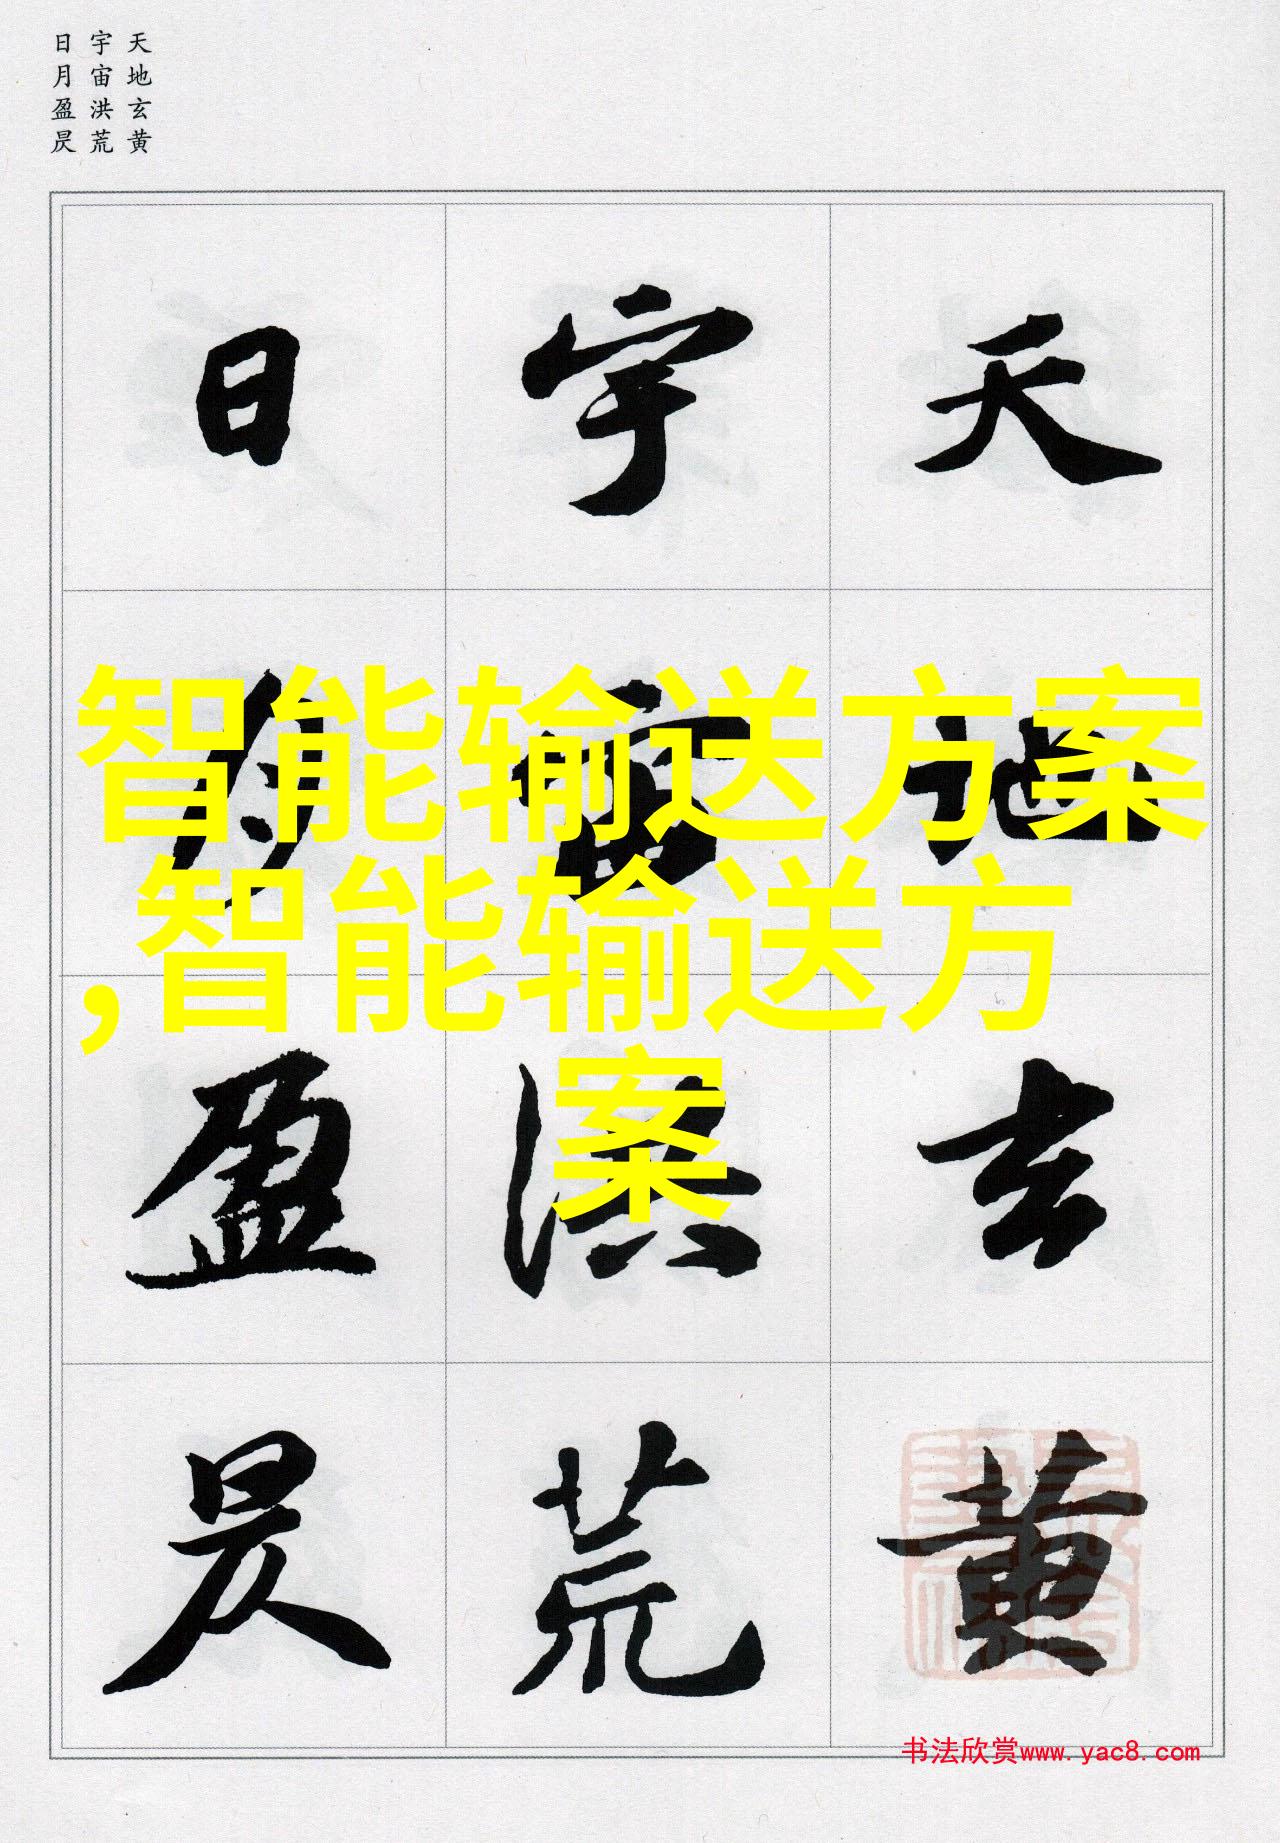 天地玄黄
宇宙洪荒
日月盈昃
天地玄黄
宇宙洪荒
日月盈昃
智能输送方案
,智能输送方
案
书法欣赏www.yac8.com